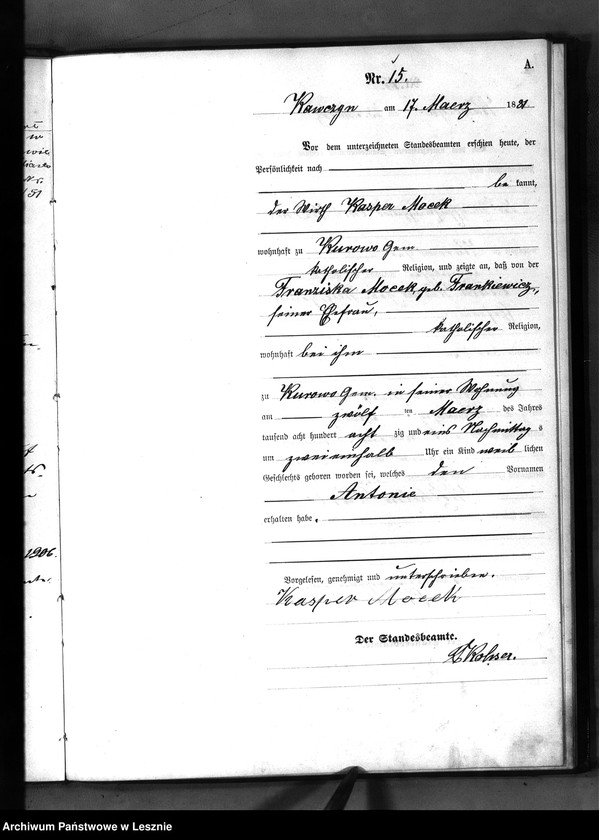 A.
Nr. 15.
Kawczyn am 17. Maerz 1881
Vor dem unterzeichneten Standesbeamten erschien heute, der
Persönlichkeit nach
be kannt,
der Wirth Kasper Mocek
wohnhaft zu Kurowo Gem
katholischer Religion, und zeigte an, daß von der
Franziska Mocek, geb. Frankiewicz,
seiner Ehefrau,
katholischer Religion,
wohnhaft bei ihm
zu Kurowo Gem. in seiner Wohnung
am zwölf ten Maerz des Jahres
tausend acht hundert acht zig und eins Nachmittag s
um zweieinhalb Uhr ein Kind weib lichen
Geschlechts geboren worden sei, welches den Vornamen
Antonie
erhalten habe.
Vorgelesen, genehmigt und unterschrieben.
Kasper Mocek
Der Standesbeamte.
1906.
Archiwum Państwowe w Lesznie